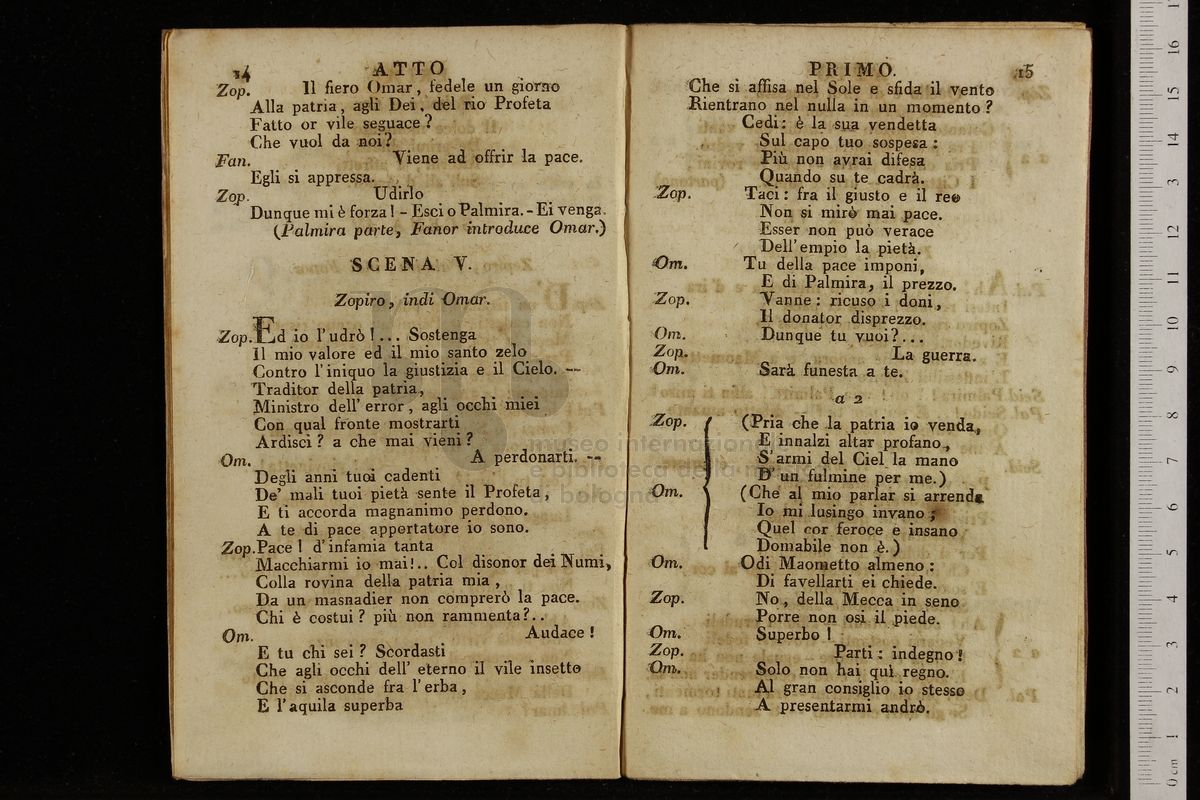 14
ATTO
Zop. Il fiero Omar, fedele un giorno
Alla patria, agli Dei, del rio Profeta
Fatto or vile seguace?
Che vuol da noi?
Fan. Viene ad offrir la pace.
Egli si appressa.
Zop. Udirlo
Dunque mi è forza! - Esci o Palmira. - Ei venga.
(Palmira parte, Fanor introduce Omar.)
SCENA V.
Zopiro, indi Omar.
Zop. Ed io l'udrò!... Sostenga
Il mio valore ed il mio santo zelo
Contro l'iniquo la giustizia e il Cielo. --
Traditor della patria,
Ministro dell' error, agli occhi miei
Con qual fronte mostrarti
Ardisci? a che mai vieni?
Om. A perdonarti. --
Degli anni tuoi cadenti
De' mali tuoi pietà sente il Profeta,
E ti accorda magnanimo perdono.
A te di pace apportatore io sono.
Zop. Pace! d'infamia tanta
Macchiarmi io mai!.. Col disonor dei Numi,
Colla rovina della patria mia,
Da un masnadier non comprerò la pace.
Chi è costui? più non rammenta?..
Om. Audace!
E tu chi sei? Scordasti
Che agli occhi dell' eterno il vile insetto
Che si asconde fra l'erba,
E l'aquila superba
PRIMO.
15
Che si affisa nel Sole e sfida il vento
Rientrano nel nulla in un momento?
Cedi: è la sua vendetta
Sul capo tuo sospesa:
Più non avrai difesa
Quando su te cadrà.
Zop. Taci: fra il giusto e il reo
Non si mirò mai pace.
Esser non può verace
Dell' empio la pietà.
Om. Tu della pace imponi,
E di Palmira, il prezzo.
Zop. Vanne: ricuso i doni,
Il donator disprezzo.
Om. Dunque tu vuoi?...
Zop. La guerra.
Om. Sarà funesta a te.
a 2
Zop. (Pria che la patria io venda,
E innalzi altar profano,
S'armi del Ciel la mano
D'un fulmine per me.)
Om. (Che al mio parlar si arrenda
Io mi lusingo invano;
Quel cor feroce e insano
Domabile non è.)
Om. Odi Maometto almeno:
Di favellarti ei chiede.
Zop. No, della Mecca in seno
Porre non osi il piede.
Om. Superbo!
Zop. Parti: indegno!
Om. Solo non hai quì regno.
Al gran consiglio io stesso
A presentarmi andrò.
museo internazionale
e biblioteca della musica
bologna
0 cm 1 2 3 4 5 6 7 8 9 10 11 12 3 14 15 16